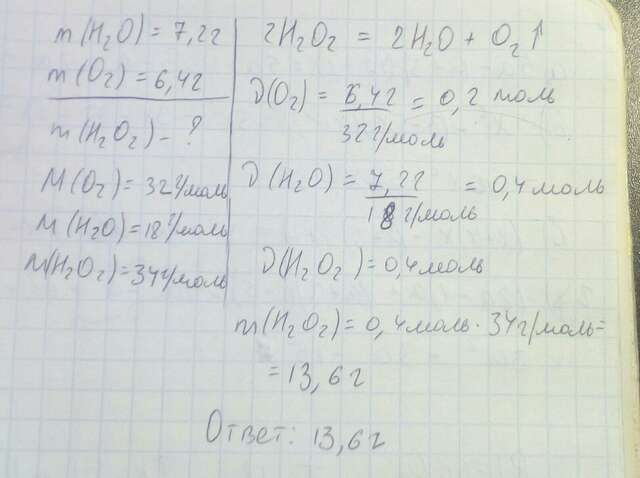 m(H₂O) = 7,2г
m(O₂) = 6,4г
m(H₂O₂) - ?
M(O₂) = 32г/моль
M(H₂O) = 18г/моль
M(H₂O₂) = 34г/моль
2H₂O₂ = 2H₂O + O₂↑
ν(O₂) = 6,4г / 32г/моль = 0,2 моль
ν(H₂O) = 7,2г / 18г/моль = 0,4 моль
ν(H₂O₂) = 0,4моль
m(H₂O₂) = 0,4моль · 34г/моль=
= 13,6г
Ответ: 13,6г